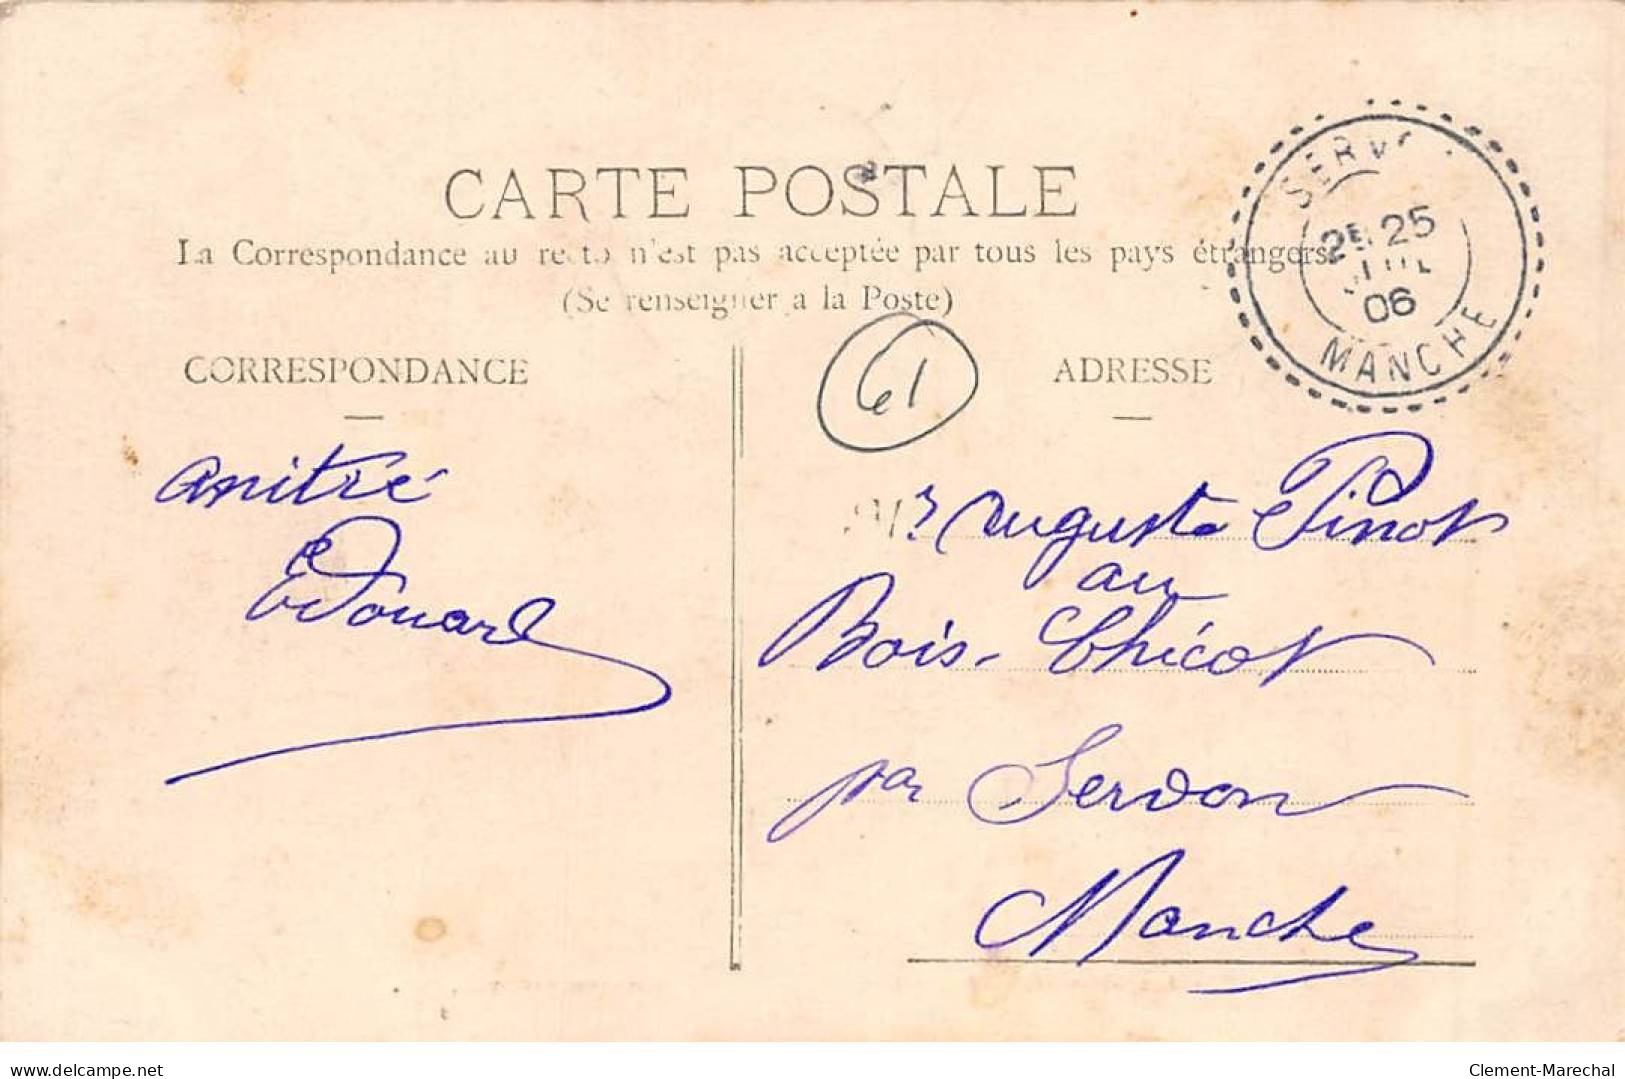 CARTE POSTALE
La Correspondance au recto n'est pas acceptée par tous les pays étrangers
(Se renseigner a la Poste)
CORRESPONDANCE
ADRESSE
61
SERVO
2E 25
JUIL
06
MANCHE
amitié
Edouard
Auguste Pinot
au
Bois-Chicot
par Servon
Manche
www.delcampe.net
Clement-Marechal